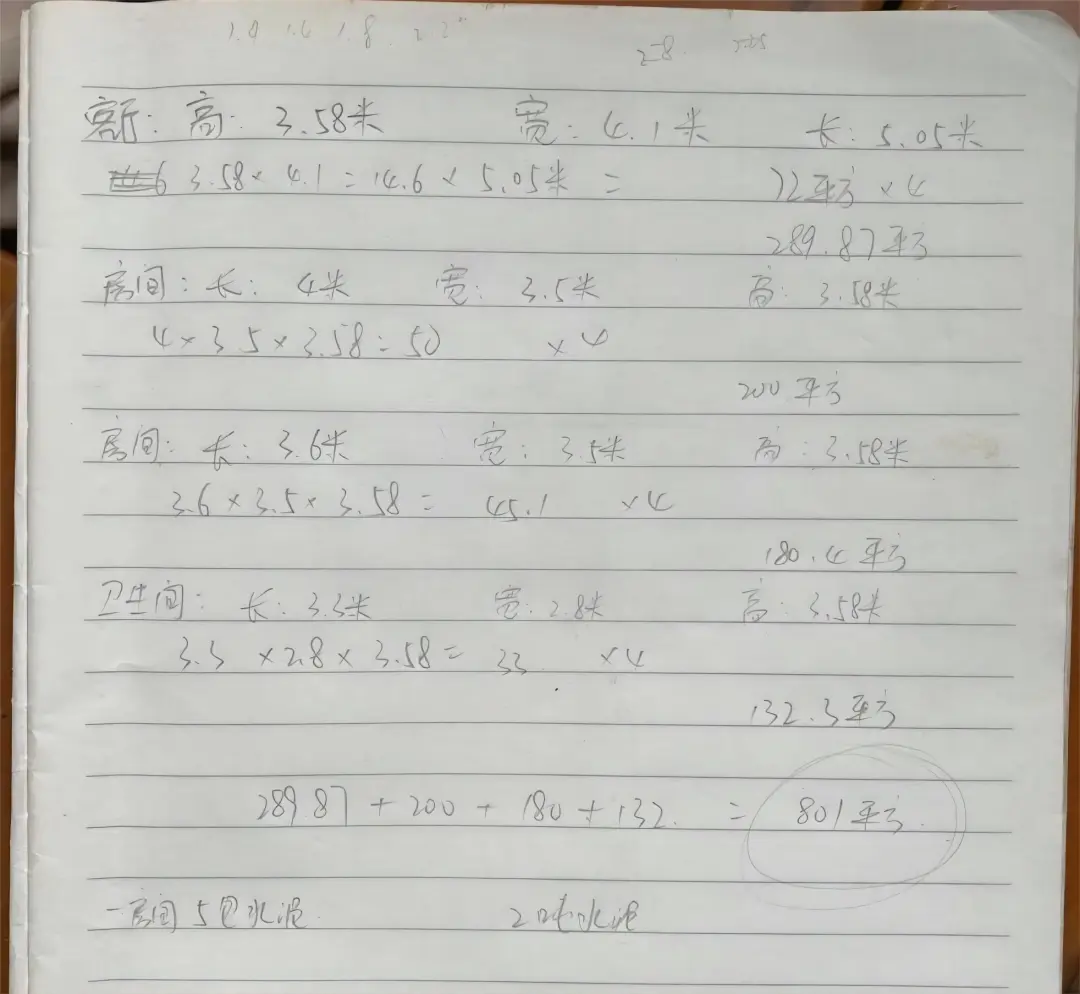 1.8 1.6 1.8 2 2
2.8. 5.05
客厅: 高: 3.58米 宽: 4.1米 长: 5.05米
6 3.58×4.1=14.6×5.05米= 72平方×4
289.87平方
房间: 长: 4米 宽: 3.5米 高: 3.58米
4×3.5×3.58=50 ×4
200平方
房间: 长: 3.6米 宽: 3.5米 高: 3.58米
3.6×3.5×3.58= 45.1 ×4
180.4平方
卫生间: 长: 3.3米 宽: 2.8米 高: 3.58米
3.3×2.8×3.58= 33 ×4
132.3平方
289.87+200+180+132. = 801平方.
一房间5包水泥 2吨水泥